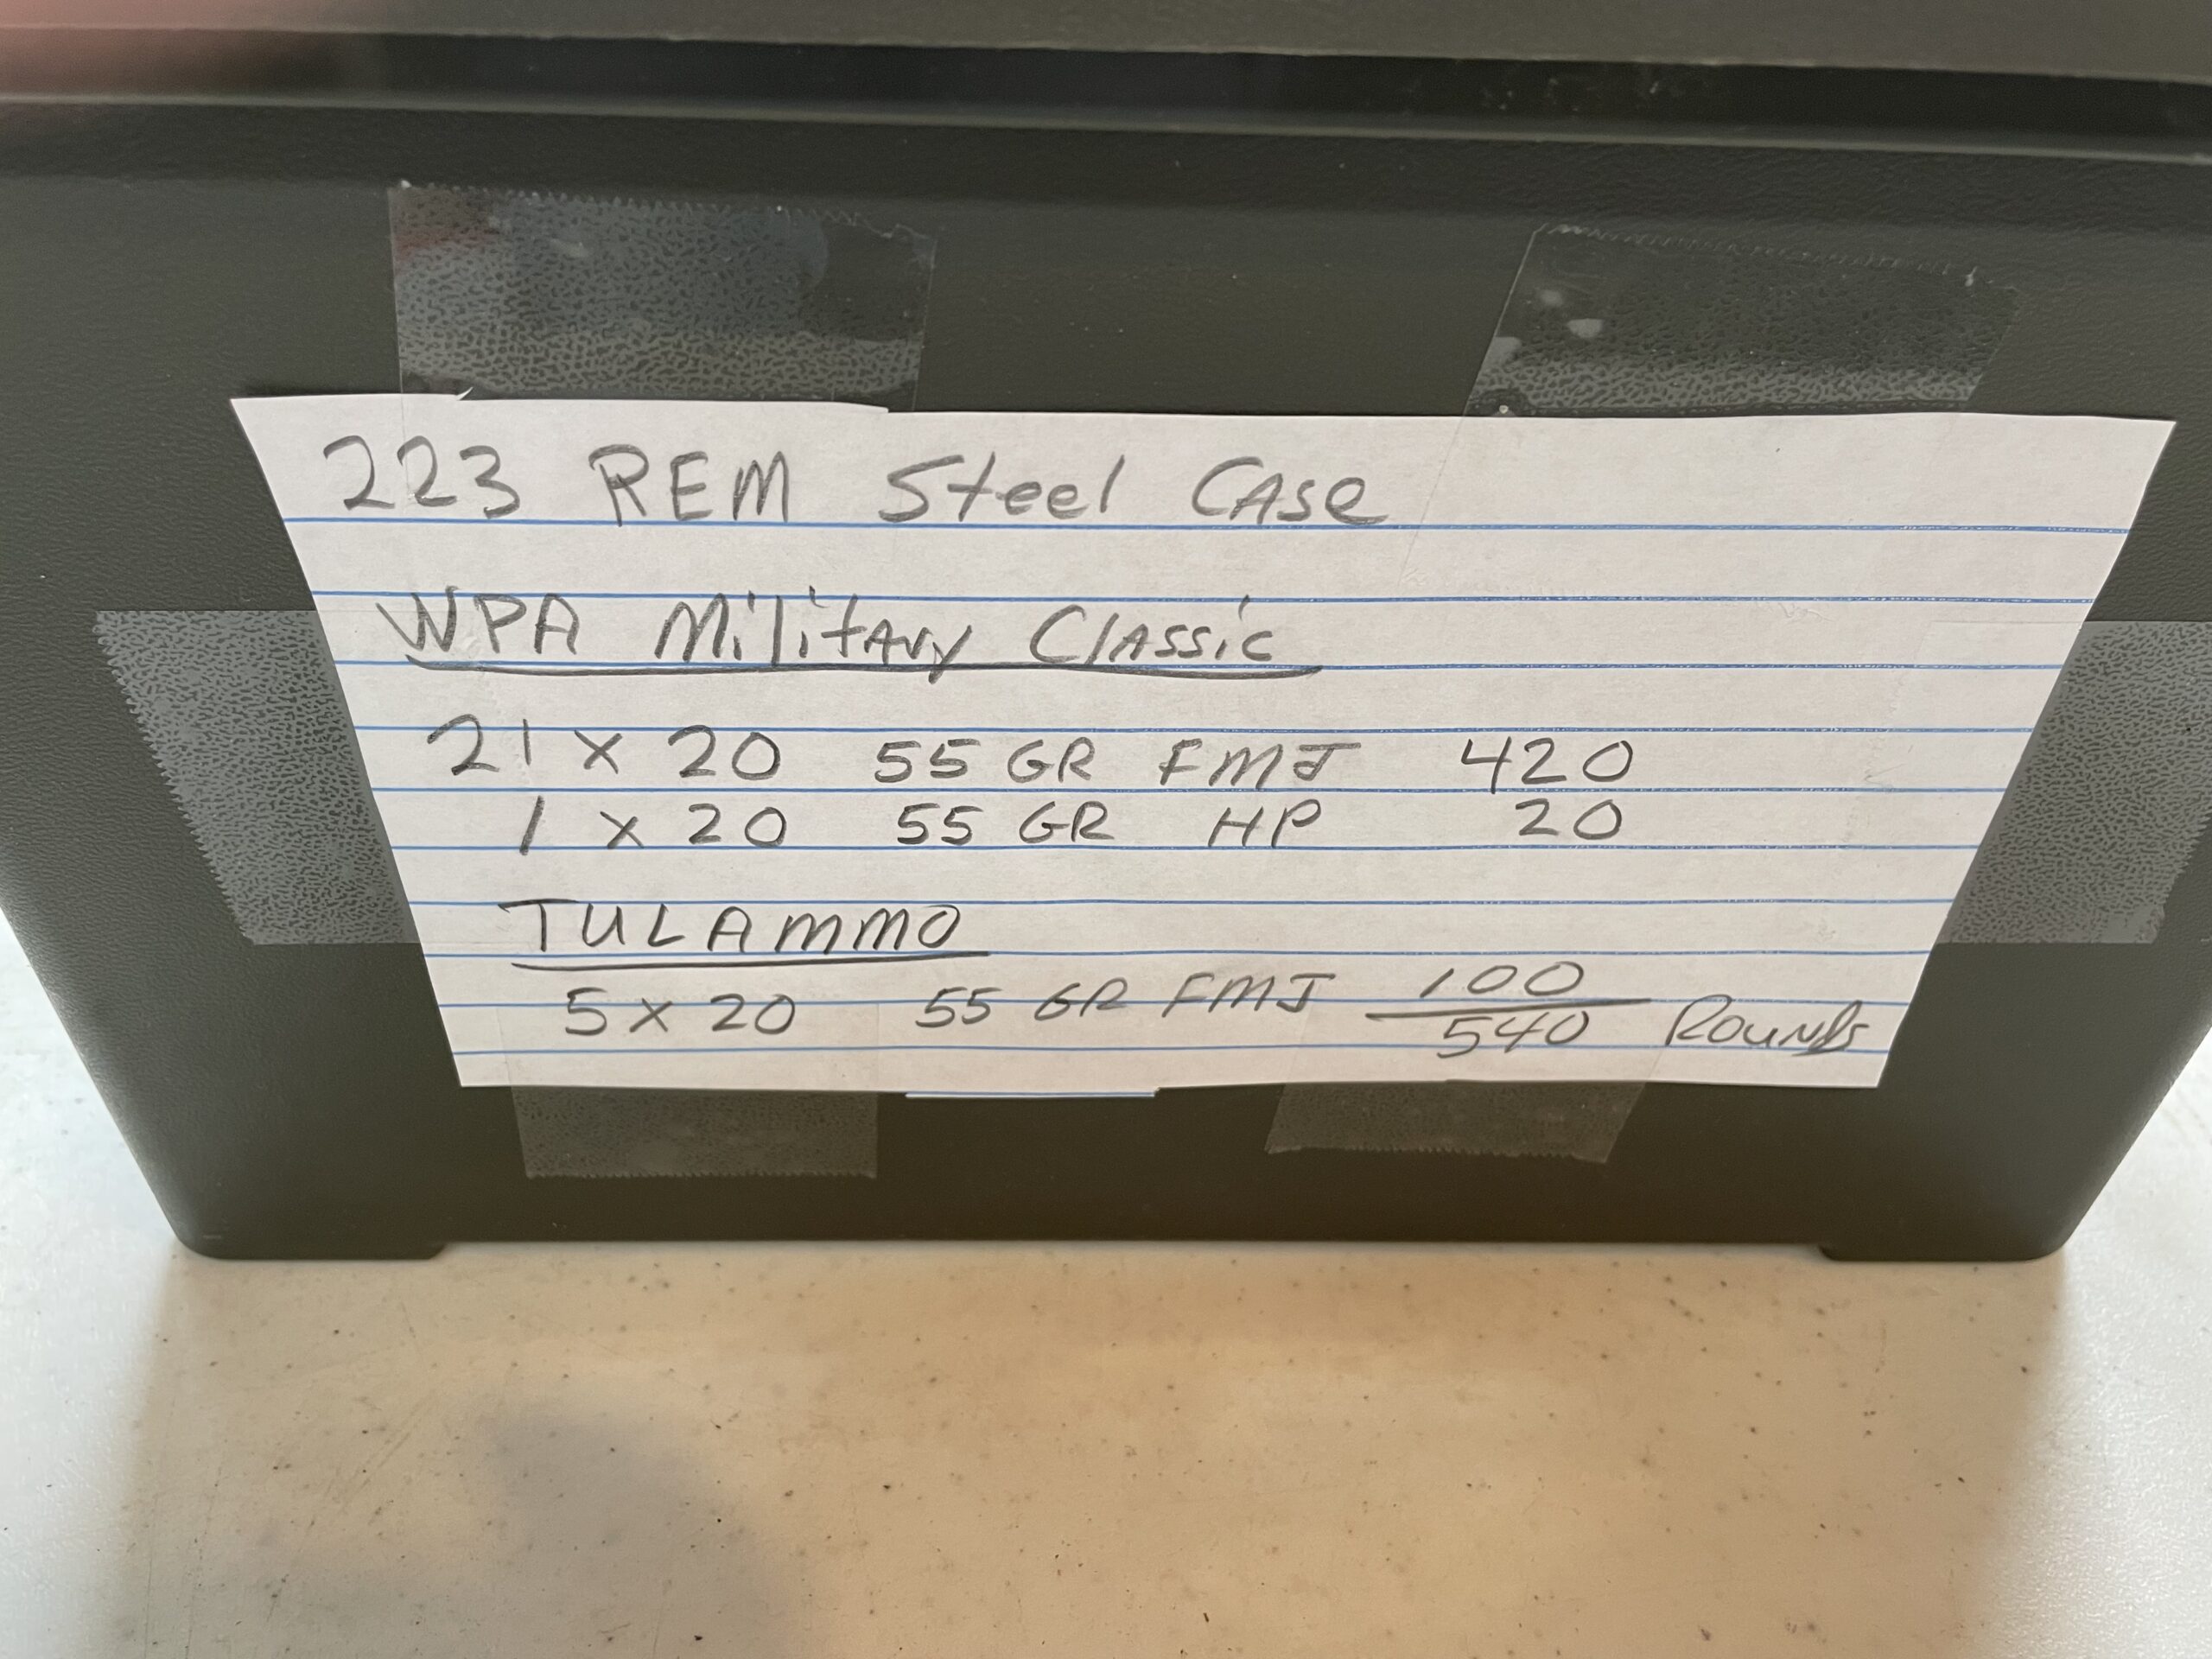 223 REM Steel Case
WPA Military Classic
21 x 20 55 GR FMJ 420
1 x 20 55 GR HP 20
TULAMMO
5 x 20 55 GR FMJ 100
540 Rounds